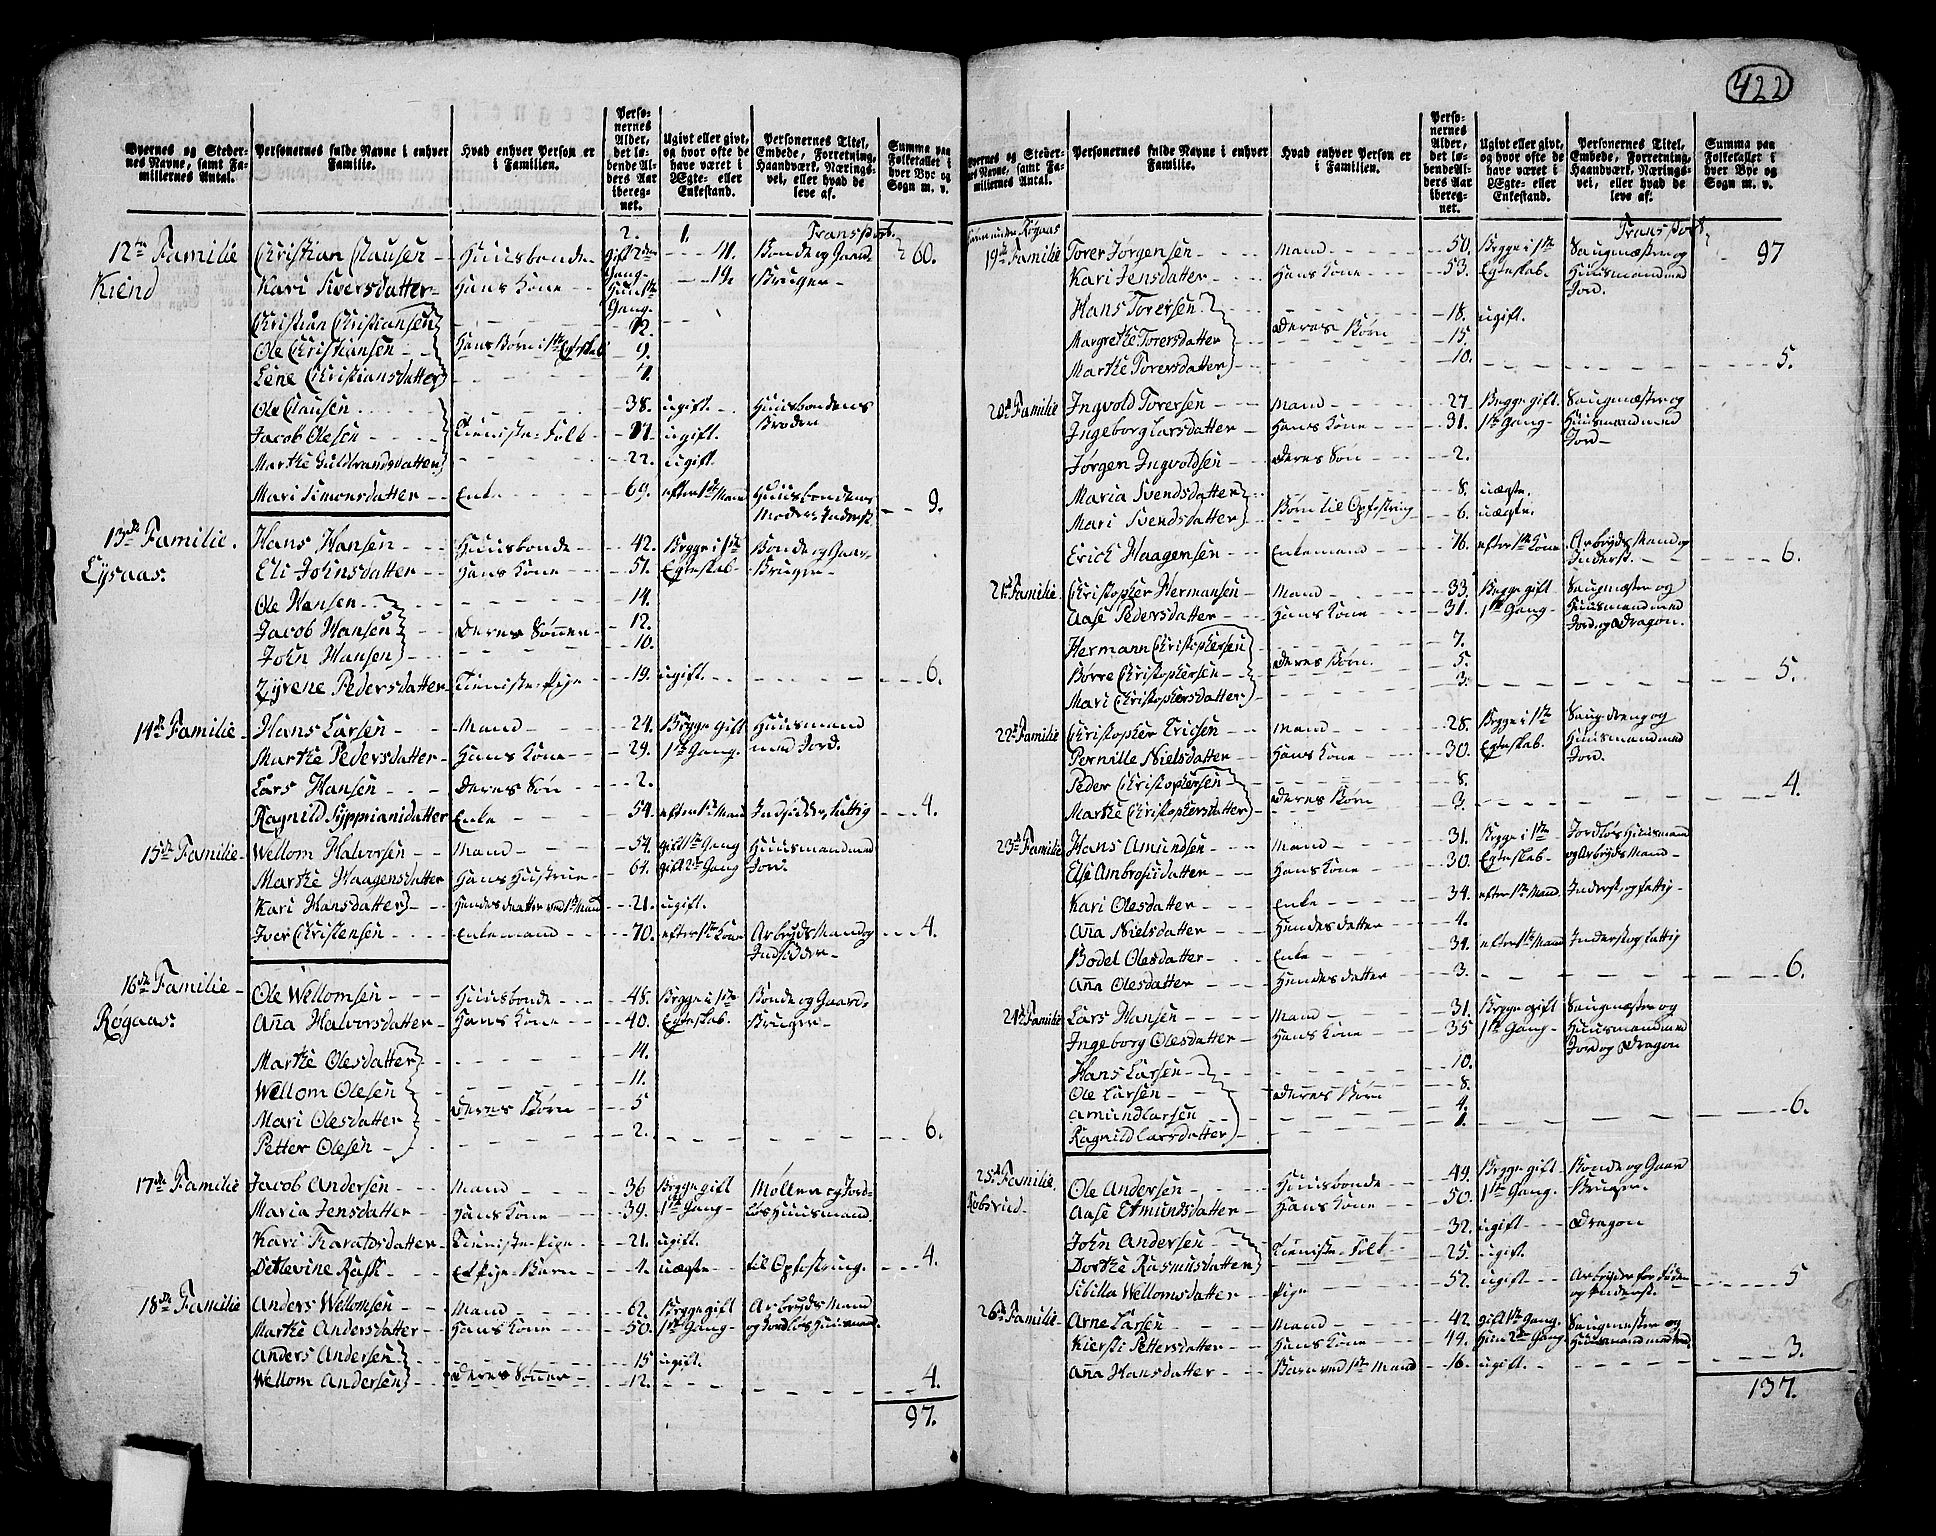 422
Byernes og Stedernes Navne, samt Familiernes Antal.
Personernes fulde Navne i enhver Familie.
Hvad enhver Person er i Familien.
Personernes Alder, det løbende Alders Aar iberegnet.
Ugivt eller givt, og hvor ofte de have været i Ægte- eller Enkestand.
Personernes Titel, Embede, Forretning, Haandværk, Næringsvei, eller hvad de leve af.
Summa paa Folketallet i hver Bye og Sogn m. v.
Transport 60.
12te Familie Christian Clausen Huusbonde gift 2den Gang Bonde og Gaard-
Kiend Kari Siversdatter Hans Kone Hun 1ste Gang Bruger
Christian Christiansen 12.
Ole Christiansen Hans Børn i 1ste Egteskab 9.
Lene Christiansdatter
Ole Clausen 38. ugift Huusbondens Broder
Jacob Olesen Tieniste-Folk ugift.
Marthe Guldbrandsdatter 22. ugift
Mari Simonsdatter Enke efter 1ste Mand Huusbondens Moder, Inderst 9.
13de Familie Hans Hansen Huusbonde 42. Begge i 1ste Bonde og Gaar-
Lysaas. Eli Johnsdatter Hans Kone 51. Egteskab Bruger
Ole Hansen 14.
Jacob Hansen Deres Sønner 12.
John Hansen 10.
Zyrene Pedersdatter Tieniste-Pige 19. ugift 6.
14de Familie Hans Larsen Mand 24. Begge gift Huusmand
Marthe Pedersdatter Hans Kone 29. 1ste Gang. med Jord.
Lars Hansen Deres Søn 2.
Ragnild Sypprianidatter Enke 54. efter 1ste Mand Indsidder, fattig 4.
15de Familie Wellom Halvorsen Mand 54. gift 1ste Gang Huusmand med
Marthe Haagensdatter Hans Hustrue 64. gift 2den Gang Jord.
Kari Hansdatter Hendes datter ved 1ste Mand 21. ugift.
Iver Christensen Enkemand 70. efter 1ste Kone Arbeyds Mand og Indsidder 4.
16de Familie Ole Wellomsen Huusbonde 48. Begge i 1ste Bonde og Gaard-
Rogaas. Aña Halvorsdatter Hans Kone 40. Egteskab. Bruger
Marthe Olesdatter 14.
Wellom Olesen 11.
Mari Olesdatter Deres Børn 5
Petter Olesen 2. 6.
17de Familie Jacob Andersen Mand 36 Begge gift Møller og Jord-
Maria Jensdatter Hans Kone 39. 1ste Gang løs Huusmand.
Kari Haraldsdatter Tieniste-Pige 21. ugift.
Ditlevine Rask Et Pige-Barn uægte til Opfostring. 4.
18de Familie Anders Wellomsen Mand 62. Begge gift Arbeyds Mand
Marthe Andersdatter Hans Kone 50. 1ste Gang og Jordløs Huusmand.
Anders Andersen 15 ugift.
Wellom Andersen Deres Sønner 12. 4.
97.
Byernes og Stedernes Navne, samt Familiernes Antal.
Personernes fulde Navne i enhver Familie.
Hvad enhver Person er i Familien.
Personernes Alder, det løbende Alders Aar iberegnet.
Ugivt eller givt, og hvor ofte de have været i Ægte- eller Enkestand.
Personernes Titel, Embede, Forretning, Haandværk, Næringsvei, eller hvad de leve af.
Summa paa Folketallet i hver Bye og Sogn m. v.
under Rogaas Transport 97
19de Familie Torer Jørgensen Mand 50. Begge i 1ste Saugmæster og
Kari Jensdatter Hans Kone 53. Egteskab. Huusmand med Jord.
Hans Torersen 18. ugift.
Margrethe Torersdatter Deres Børn 15.
Marthe Torersdatter 10. 5.
20de Familie Ingvold Torersen Mand 27. Begge gift Saugmæster og
Ingeborg Larsdatter Hans Kone 31. 1ste Gang Huusmand med Jord
Jørgen Ingvoldsen Deres Søn 2.
Maria Svendsdatter 8. uægte.
Mari Svendsdatter Børn til Opfostring 6. uægte.
Erich Haagensen Enkemand 76. efter 1ste Kone Arbeyds Mand og Inderst. 6.
21de Familie Christopher Hermansen Mand 33. Begge gift Saugmæster og
Aase Pedersdatter Hans Kone 31. 1ste Gang Huusmand med Jord, og Dragon.
Hermann Christophersen 7.
Børre Christophersen Deres Børn 5.
Mari Christophersdatter 3. 5.
22de Familie Christopher Ericsen Mand 28. Begge i 1ste Saugdreng og
Pernille Nielsdatter Hans Kone 30. Egteskab. Huusmand med Jord.
Peder Christophersen 8.
Marthe Christophersdatter Deres Børn 3. 4.
23de Familie Hans Amundsen Mand 31. Begge i 1ste Jordløs Huusmand
Else Ambrosiidatter Hans Kone 30. Egteskab og Arbeyds Mand
Kari Olesdatter Enke 34. efter 1ste Mand Inderst, og fattig
Aña Nielsdatter Hendes datter 4.
Bodel Olesdatter Enke 34. efter 1ste Mand Inderst og fattig
Aña Olesdatter Hendes datter 3. 6.
24de Familie Lars Hansen Mand 31. Begge gift Saugmæster og
Ingeborg Olesdatter Hans Kone 35 1ste Gang Huusmand med Jord og Dragon
Hans Larsen 10.
Ole Larsen Deres Børn 8.
Amund Larsen 4.
Ragnild Larsdatter 1. 6.
25de Familie. Ole Andersen Huusbonde 49. Begge gift Bonde og Gaard
Aase Edmundsdatter Hans Kone 50. 1ste Gang. Bruger.
John Andersen 32. ugift Dragon
Dorthe Rasmusdatter Tieniste-Folk 25. ugift
Sibilla Wellomsdatter Pige 52. ugift Arbeyder for Føde og Inderst. 5
26de Familie Arne Larsen Mand 42. gift 1ste Gang. Saugmester og
Kiersti Pettersdatter Hans Kone 49. Hun 2den Gang Huusmand med Jord.
Aña Hansdatter Barn ved 1ste Mand 16. ugift. 3.
137.